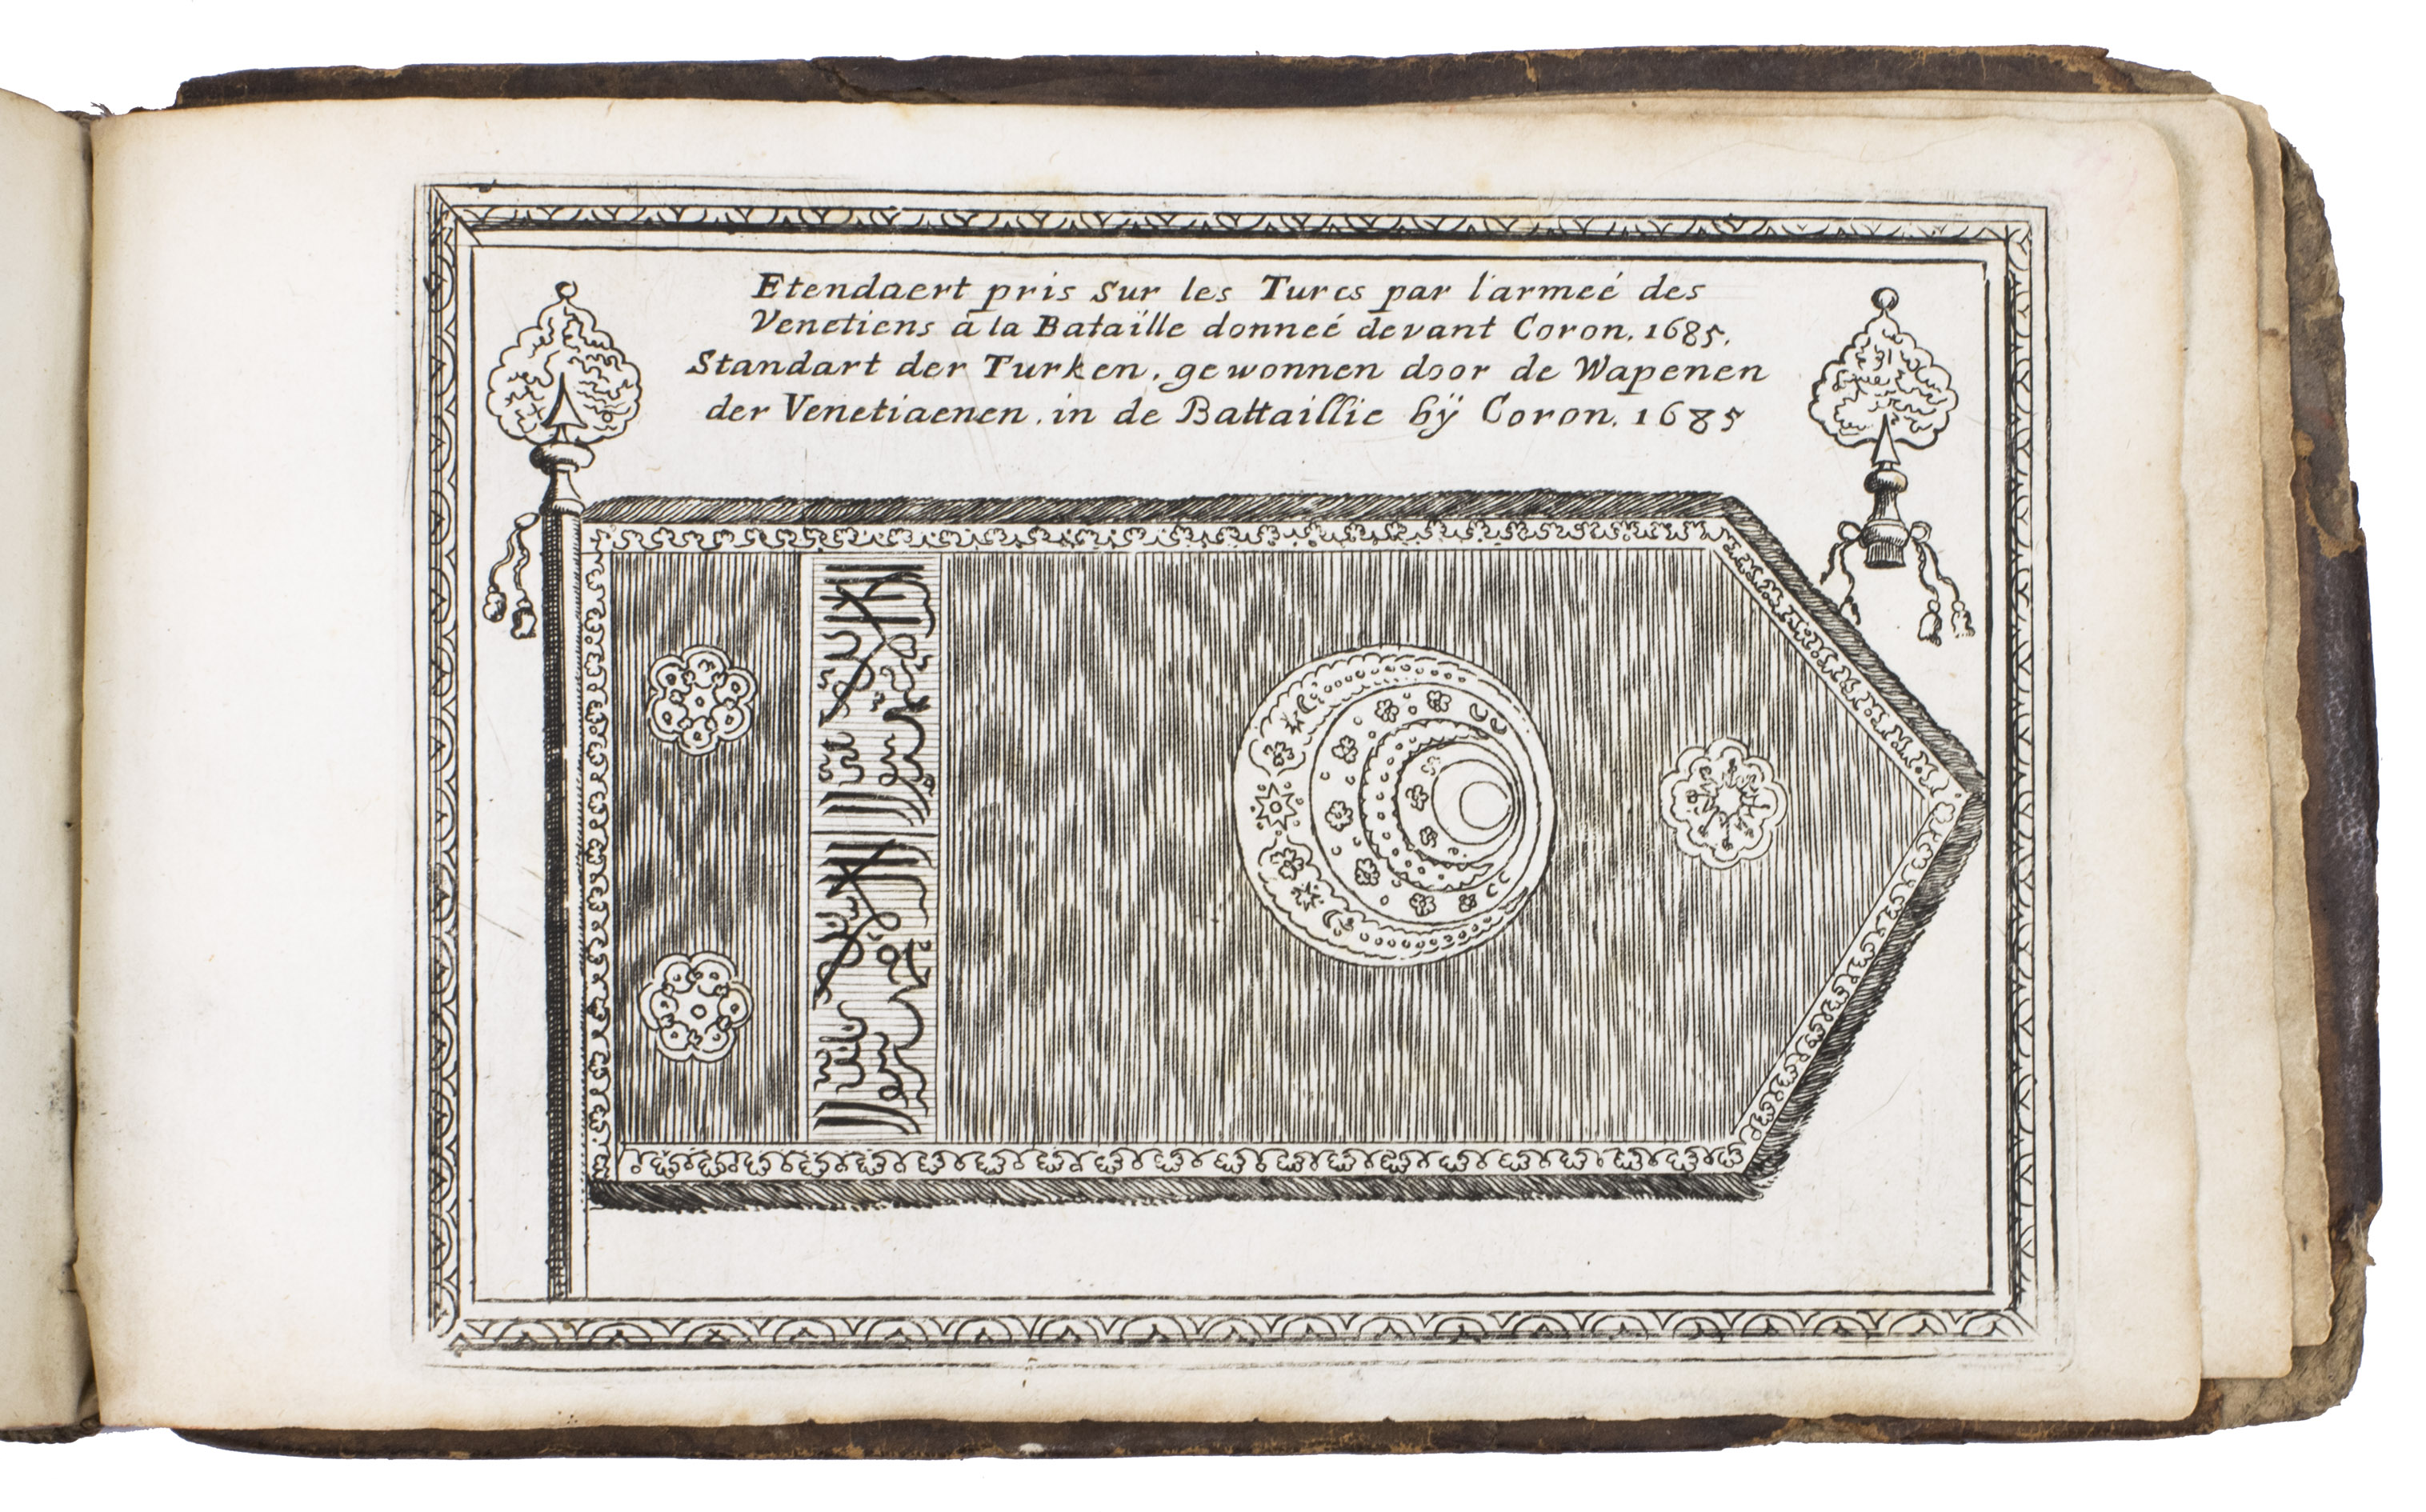 Etendaert pris sur les Turcs par l'armeé des
Venetiens a la Bataïlle donneé devant Coron. 1685.
Standart der Turken, gewonnen door de Wapenen
der Venetiaenen. in de Battaillie bÿ Coron. 1685